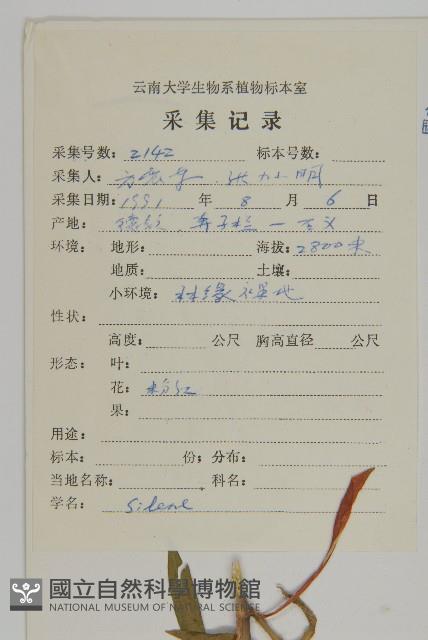 云南大学生物系植物标本室
采集记录
采集号数: 2142 标本号数:
采集人: 小明
采集日期: 1991 年 8 月 6 日
产地: 德钦、奔子栏一
环境: 地形: 海拔: 2800米
地质: 土壤:
小环境: 林缘湿地
性状:
高度: 公尺 胸高直径 公尺
形态: 叶:
花: 粉红
果:
用途:
标本: 份; 分布:
当地名称: 科名:
学名: Silene
國立自然科學博物館
NATIONAL MUSEUM OF NATURAL SCIENCE